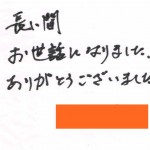 長い間
お世話になりました.
ありがとうございました